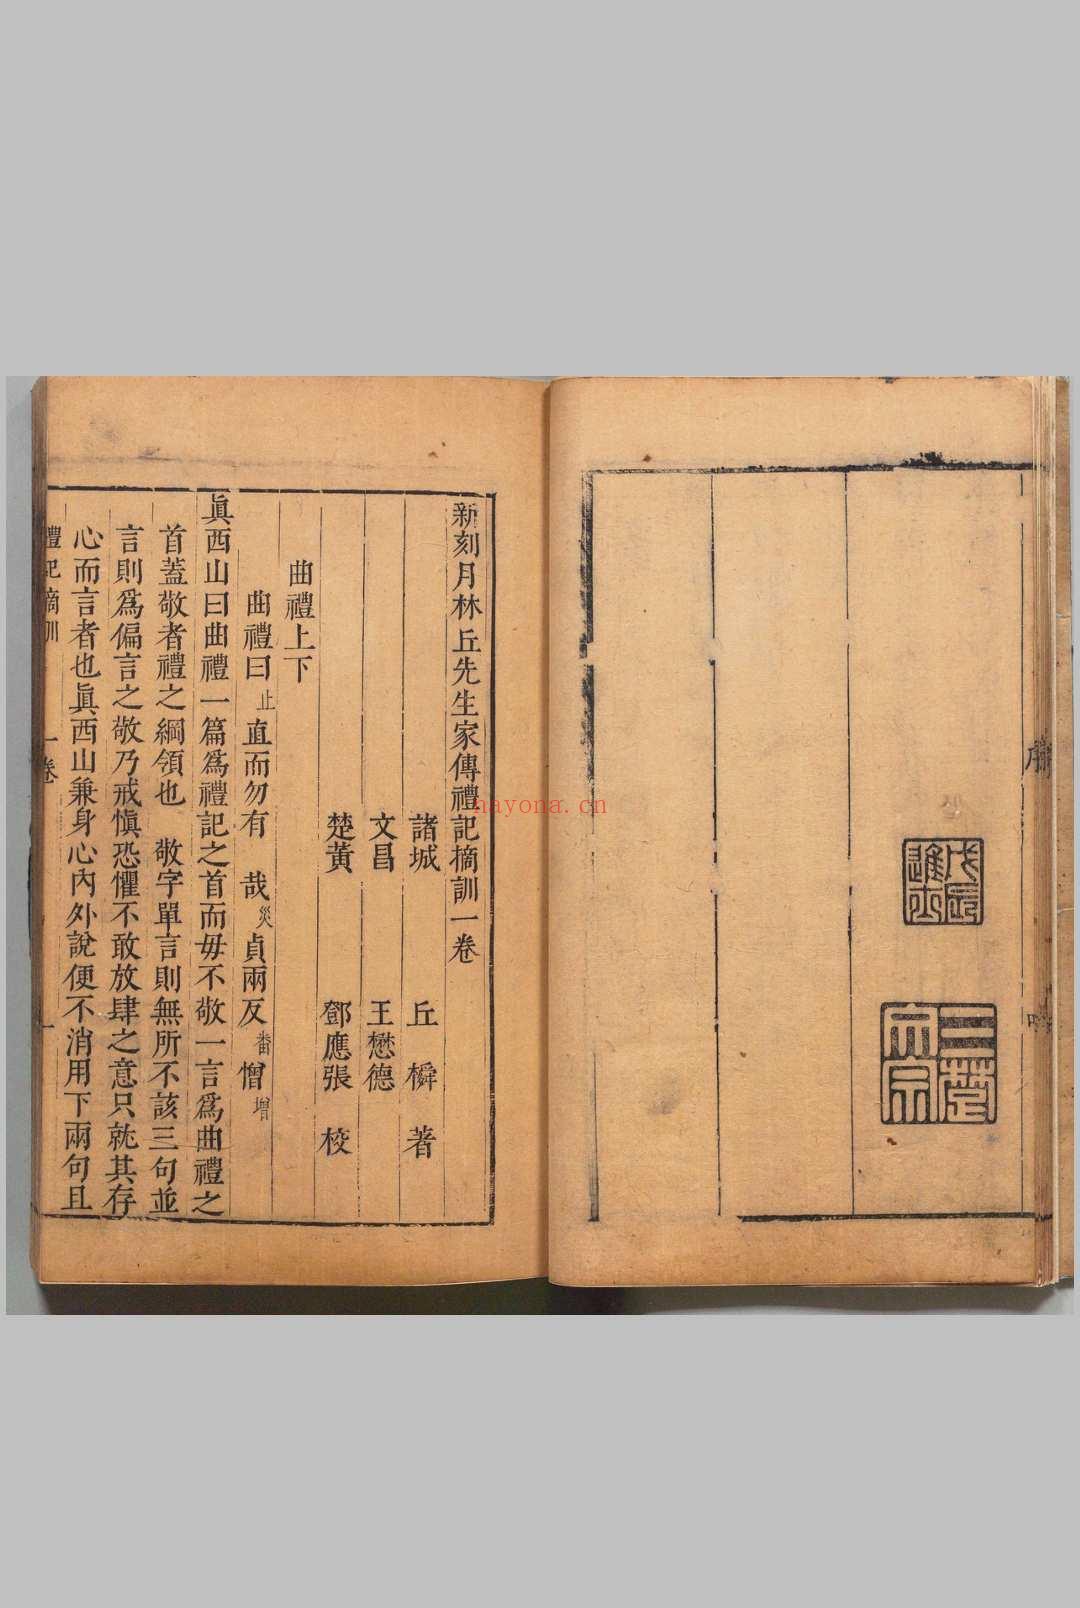 戊辰進士
新刻月林丘先生家傳禮記摘訓一卷
諸城 丘橓 著
文昌 王懋德
楚黃 鄧應張 校
曲禮上下
曲禮曰止直而勿有 哉災貞兩反番憎增
眞西山曰曲禮一篇爲禮記之首而毋不敬一言爲曲禮之
首蓋敬者禮之綱領也 敬字單言則無所不該三句並
言則爲偏言之敬乃戒愼恐懼不敢放肆之意只就其存
心而言者也眞西山兼身心內外說便不消用下兩句且
禮記摘訓 一卷 一
nayona.cn